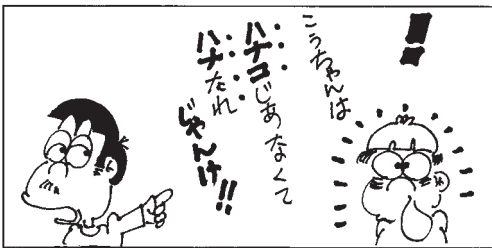 ！
こうちゃんは
ハナコじあなくて
ハナたれ
じゃんけ!!